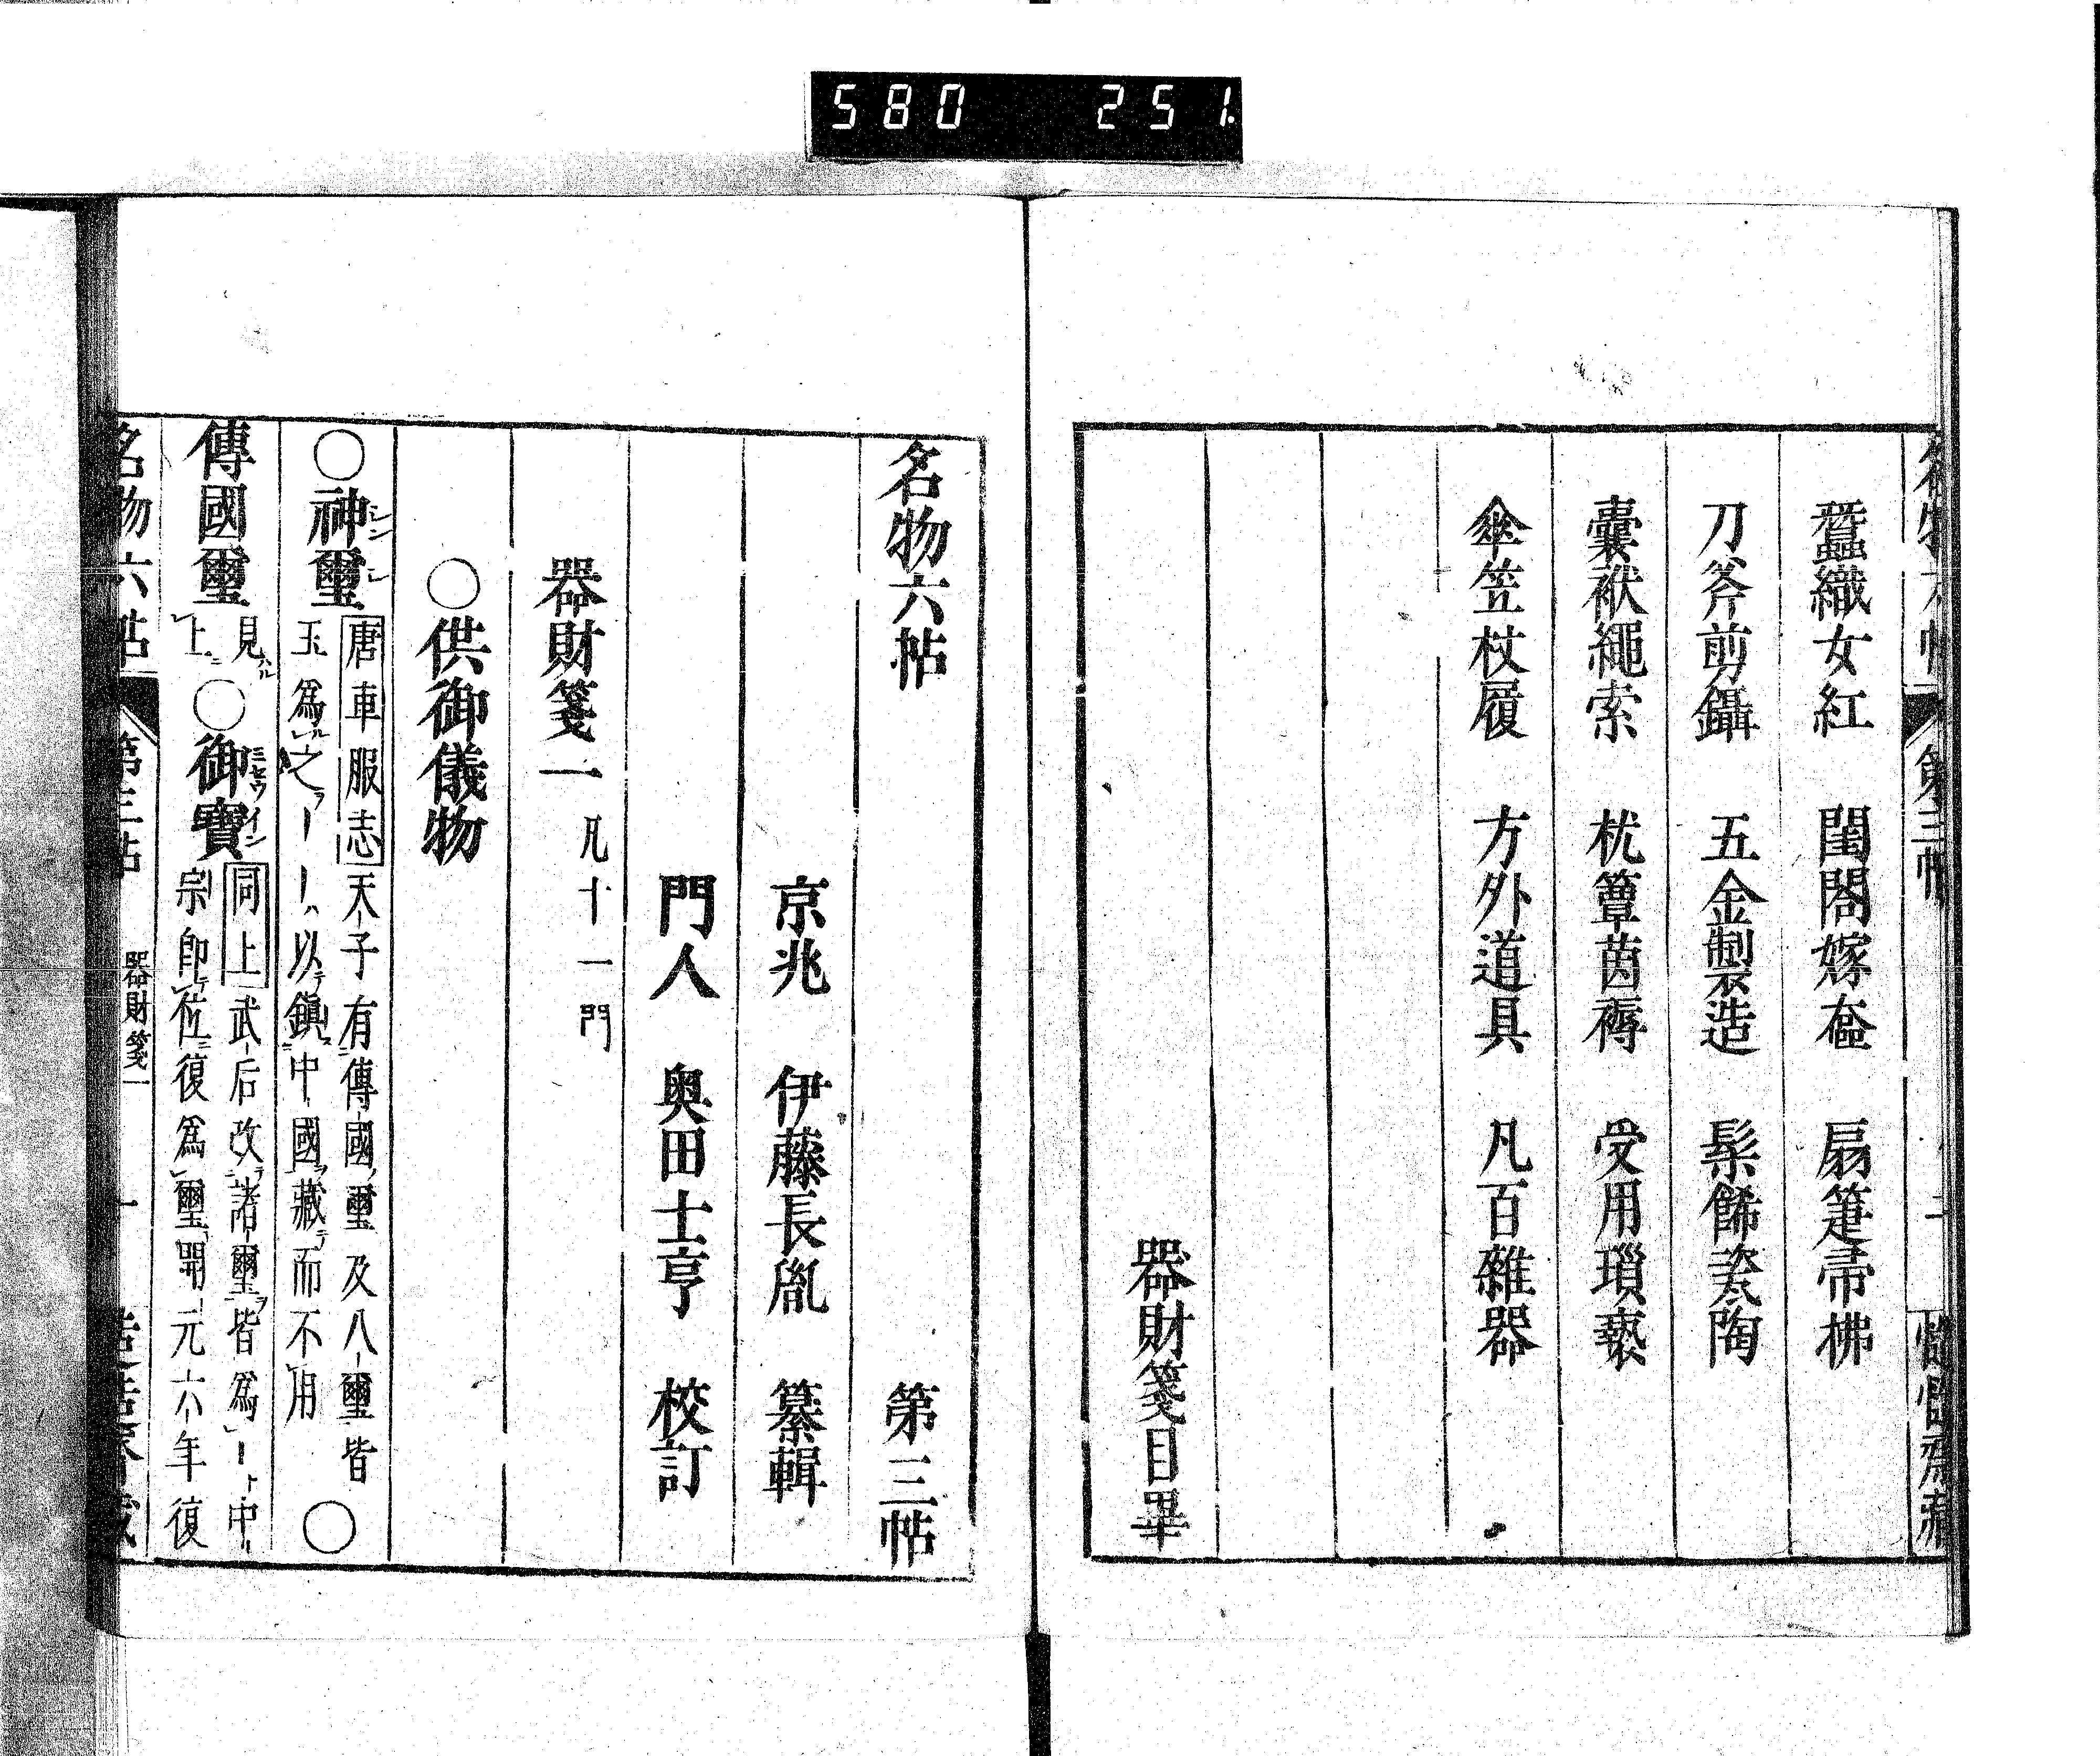 580 251.
蠶織女紅 閨閤嫁奩 扇箑帚拂
刀斧剪鑷 五金製造 髹餙瓷陶
囊袱繩索 枕簟茵褥 受用瑣褻
傘笠杖履 方外道具 凡百雜器
器財箋目畢
名物六帖 第三帖
京兆 伊藤長胤 纂輯
門人 奥田士亨 校訂
器財箋一 凡十一門
○供御儀物
○神璽 唐車服志 天子有傳國璽及八璽皆
玉爲之ーー以鎭中國藏而不用 ○
傳國璽 見上 ○御寶 同上 武后改諸璽皆爲ー中
宗即位復爲璽開元六年復
名物六帖 第三帖 器財箋一 一